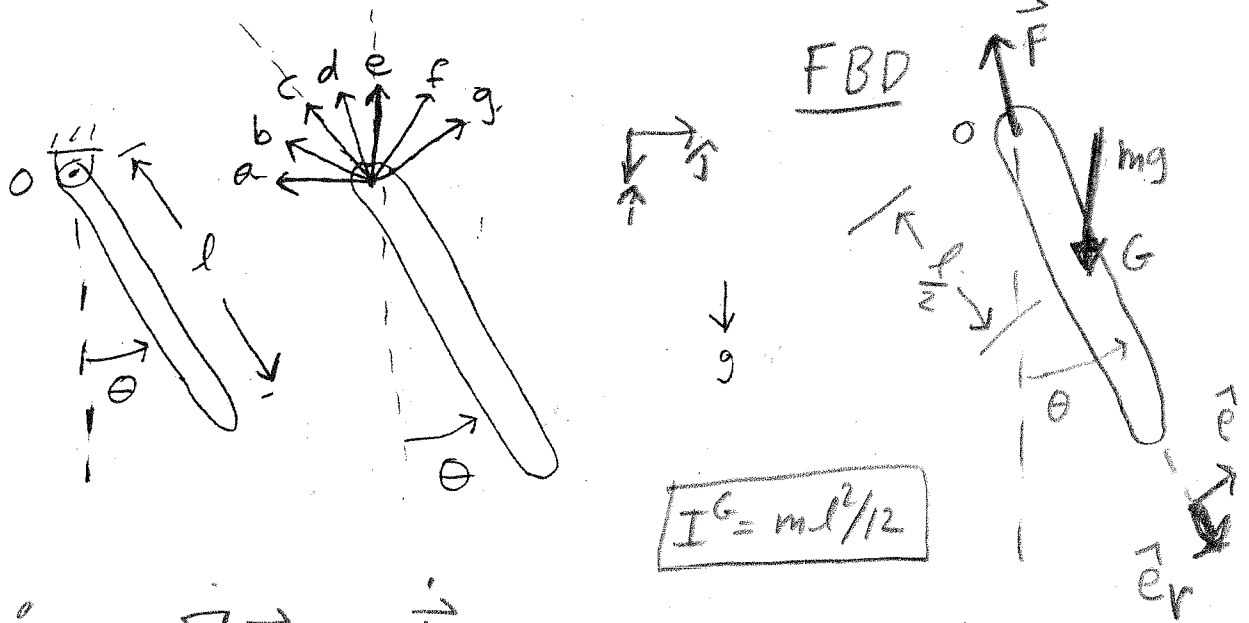 O
l
θ
a
b
c
d
e
f
g.
θ
ĵ
î
g
FBD
F⃗
O
mg
G
l/2
θ
ê
ê_r
I^G = ml²/12